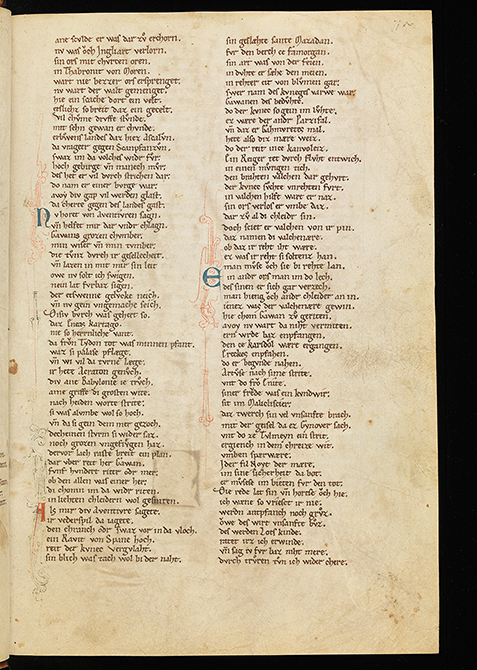 ane scvlde er was dar zv erchorn.
nv wart och Jngliart verlorn.
sin ors mit chvrcen oren.
in Thabronit von Moren.
wart nie bezzer ors ersprenget.
nv wart der walt gemenget.
hie ein schache dort ein velt.
etslicher so breit daz ein gecelt.
vil chvme drvffe stvnde.
mit sehn gewan er chvnde.
erbvwens landes daz hiez Ascalvn.
da vrageter gegen Scanpfanzvn.
swaz im da volches wider fvr.
hoch gebirge vn̄ manech mvr.
des het er vil dvrch strichen dar.
do nam er einer bvrge war.
avoy div gap vil werden glast.
da cherte gegen des landes gast.
Nv horet von aventivren sagn.
vn̄ helfet mir dar vndr chlagn.
Gawans grozen chvmber.
min wiser vn̄ min tvmber.
die tvnz dvrch ir gesellecheit.
vn̄ lazen in mit mir sin leit
owe nv solt ich swigen.
nein lat fvrbaz sigen.
der etswenne gelvcke neich.
vn̄ nv gein vngemache seich.
Disiv bvrch was gehert so.
daz Eneas kartago.
nie so herrenliche vant.
da fron Tydon tot was minnen pfant.
waz si palase pflæge.
vn̄ wi vil da tvrne læge.
ir hete Acraton genvch.
div ane Babylonie ie trvch.
ame griffe di grosten wite.
nach heiden worte strite.
si was alvmbe wol so hoch.
vn̄ da si gein dem mer gezoch.
decheinen stvrm si wider saz.
noch grozen vngefvgen haz.
dervor lach raste breit ein plan.
dar vber reit her Gawan.
fvnf hvndert riter oder mer.
ob den allen was einer her.
di chomn im da wider riten.
in liehten chleidern wol gesniten.
Als mir div Aventivre sagete.
ir vederspil da iagete.
den chranch oder swaz vor in da vloch.
ein Ravit von Spane hoch.
reit der kvnec Vergvlaht.
sin blich was tach wol bi der naht.
sin geslæhte sante Mazadan.
fvr den berch ce famorgan.
sin art was von der feien.
in dvhte er sæhe den meien.
in rehter cit von blvmen gar.
swer nam des kvneges varwe war.
Gawanen des bedvhte.
do der kvnec so gein im lvhte.
ez wære der ander Parzifal.
vn̄ daz er Gahmvretes mal.
hete also diz mære weiz.
do der reit ince kanvoleiz.
Ein Reiger tet dvrch flvht entwich.
in einen mvrigen tich.
den brahten valchen dar gehvrt.
der kvnec svchte vnrehten fvrt.
in valchen hilfe wart er naz.
sin ors verlos er vmbe daz.
dar zv al di chleider sin.
doch sciet er valchen von ir pin.
daz namen di valchenære.
ob daz ir reht iht wære.
ez was ir reht si soltenz han.
man mvse och sie bi rehte lan.
Ein ander ors man im do lech.
des sinen er sich gar verzech.
man hieng och ander chleider an in.
ienez was der valchenære gewin.
hie chom Gawan zv geriten.
avoy nv wart da niht vermiten.
ern wrde baz enpfangen.
den ce karidol wære ergangen.
do er begunde nahen.
Artvse nach sime strite.
vnt do fro Cnite.
siner frevde was ein kvndwir.
sit im Maheliscier.
daz twerch sin vel vnsanfte brach.
mit der geisel da ez Gynover sach.
vnt do ze Tvlmeyn ein strit.
ergiench in dem chreize wit.
vmben sparwære.
Jder fil Noyt der mære.
im sine sicherheit da bot.
er mvse im bieten fvr den tot.
Die rede lat sin vn̄ hortse och hie.
ich wæne so vrieset ir nie.
werden antpfanch noch grvz.
owe des wirt vnsanfte bvz.
des werden Lotes kinde.
ratet irz ich erwinde.
vn̄ sag iv fvr baz niht mere.
dvrch trvren tvn ich wider chere.